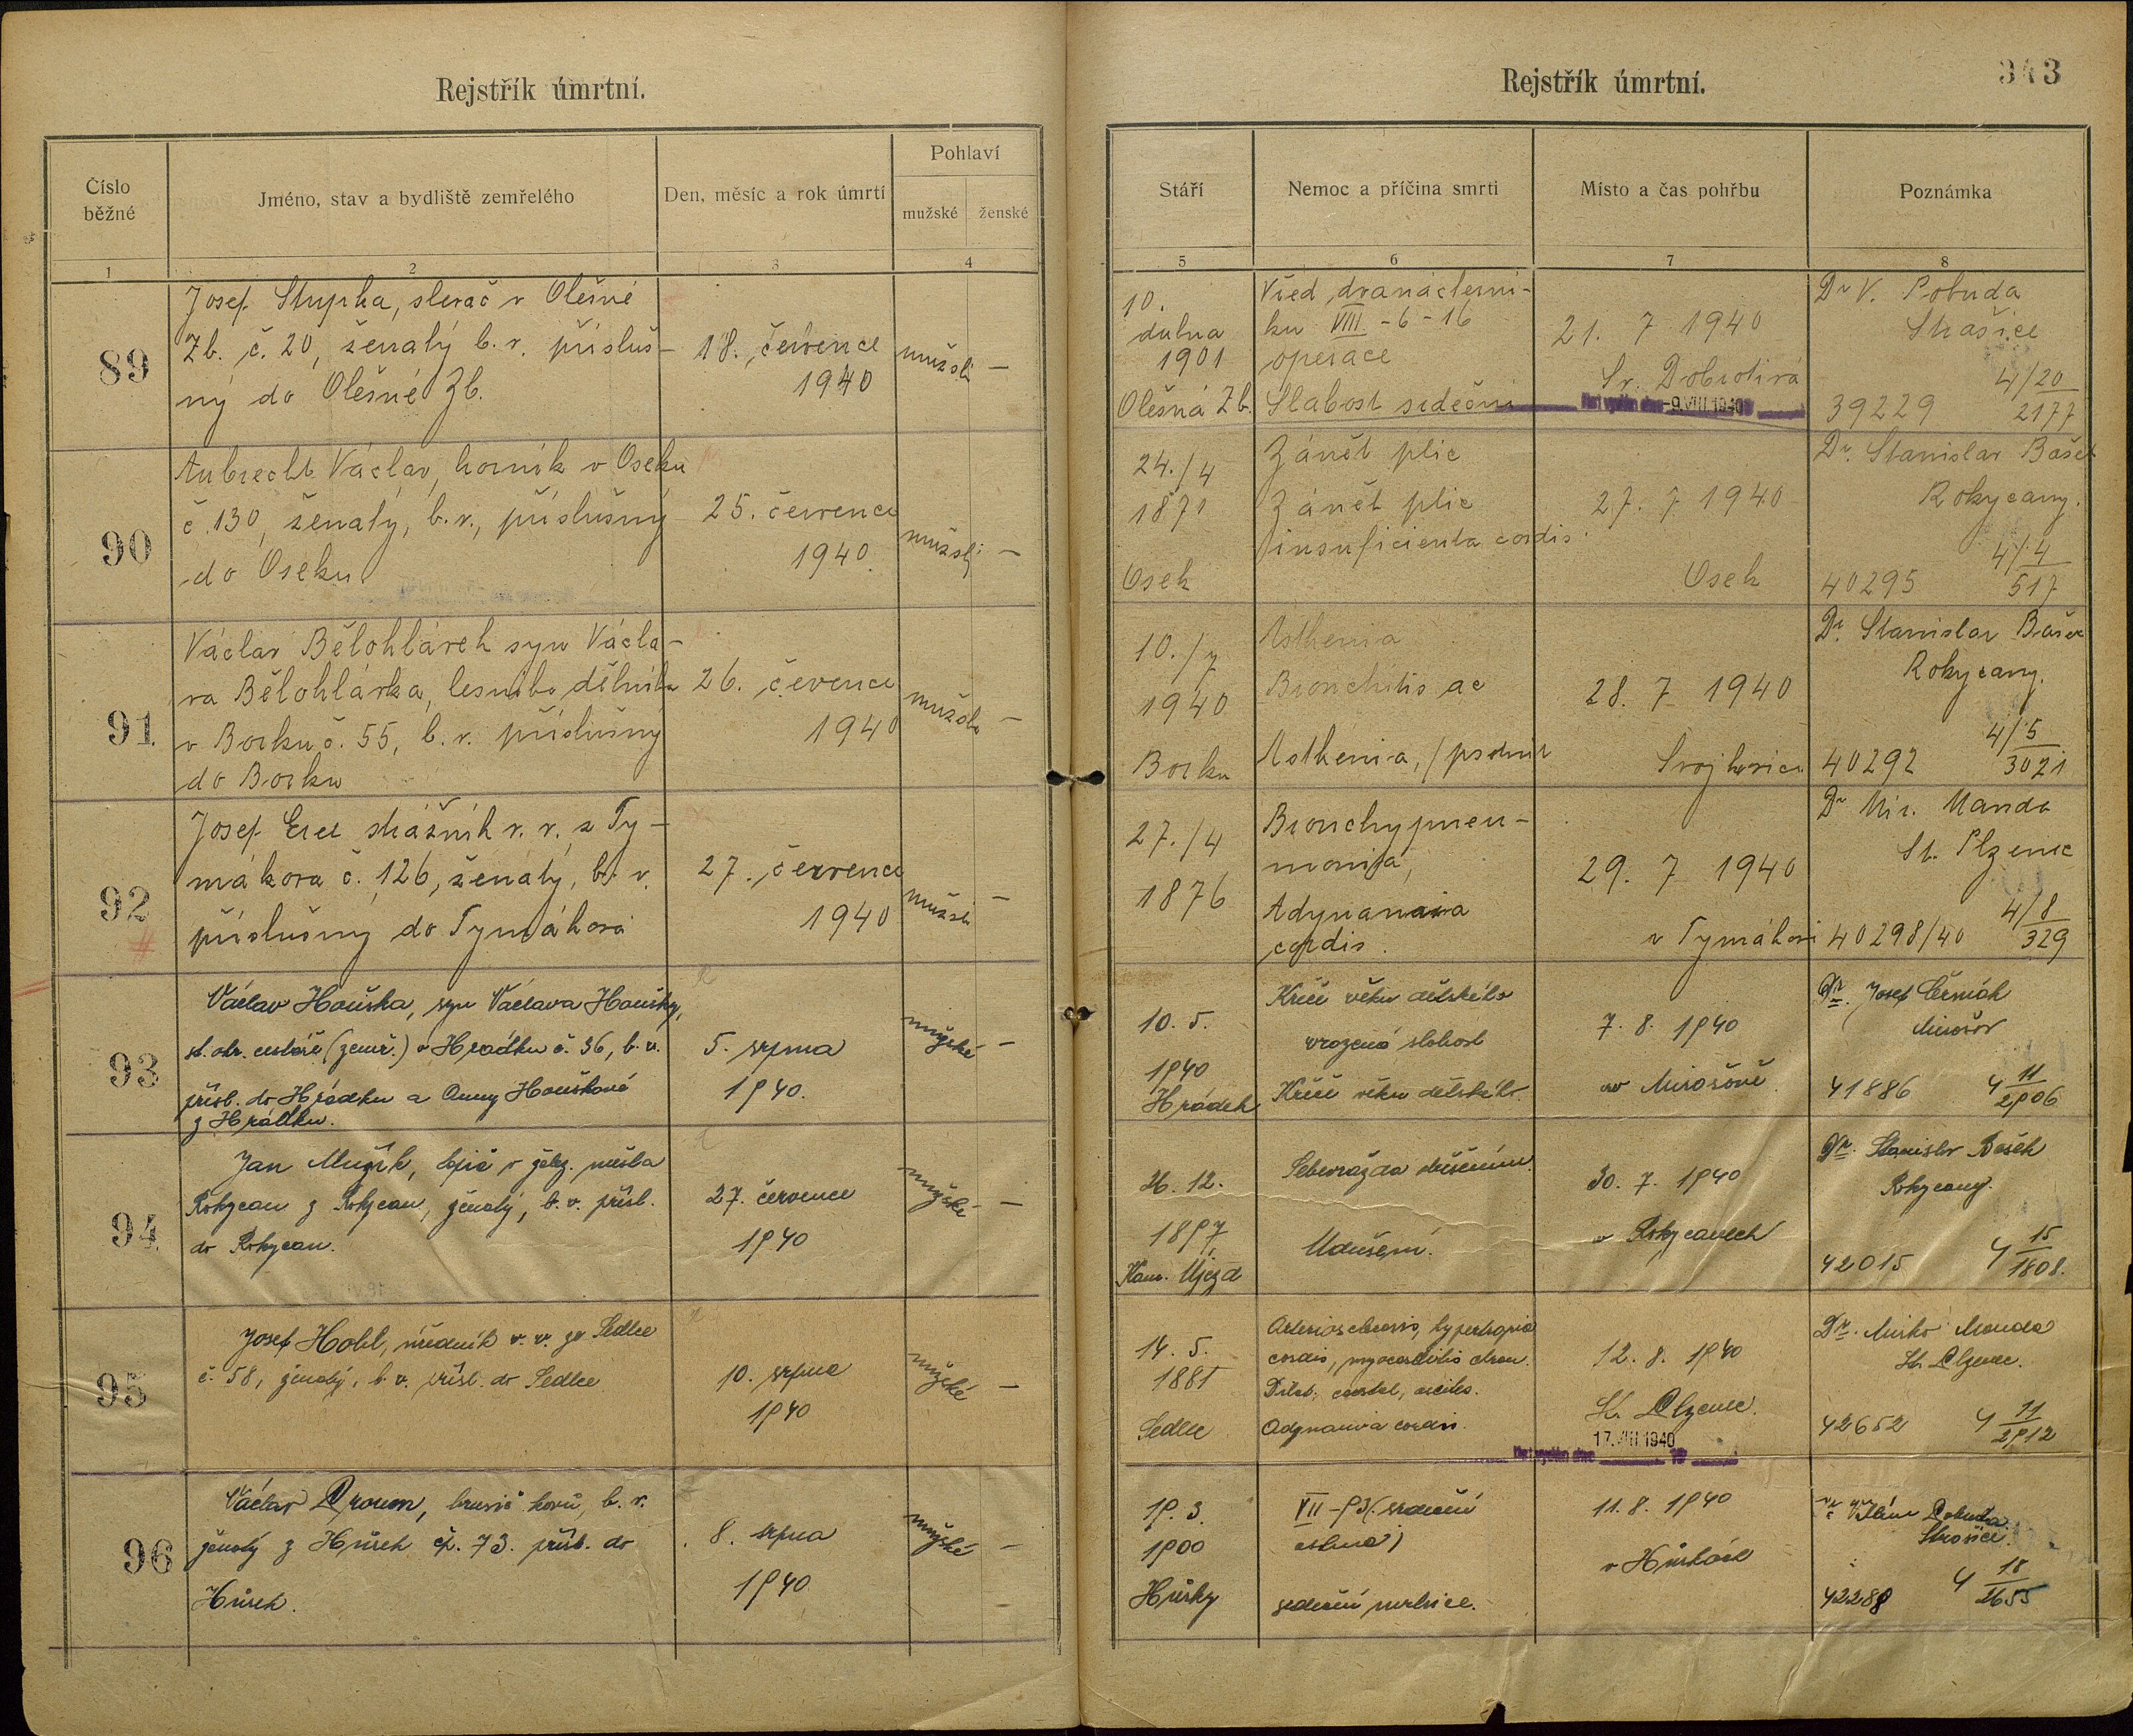 Rejstřík úmrtní.
Číslo běžné
Jméno, stav a bydliště zemřelého
Den, měsíc a rok úmrtí
Pohlaví
mužské
ženské
1
2
3
4
89
Josef Stupka, slevač v Olešné
Zb. č. 20, ženatý b. v. přísluš-
ný do Olešné Zb.
18. července
1940
mužské
—
90
Aubrecht Václav, horník v Oseku
č. 130, ženatý, b. v., příslušný
do Oseku
25. července
1940.
mužský
—
91.
Václav Bělohlávek syn Václa-
va Bělohlávka, lesního dělníka
v Borku č. 55, b. v. příslušný
do Borku
26. července
1940
mužské
—
92
Josef strážník v. v. z Ty-
mákova č. 126, ženatý, b. v.
příslušný do Tymákova
27. července
1940
mužské
—
93
Václav Houška, syn Václava Houšky,
st. obr. cestáře (zemř.) v Hrádku č. 36, b. v.
přísl. do Hrádku a Anny Houškové
z Hrádku.
5. srpna
1940.
mužské
—
94.
Jan Mužík, topič v želez. města
Rokycan z Rokycan, ženatý, b. v. přísl.
do Rokycan.
27. července
1940
mužské
—
95
Josef Hohl, úředník v. v. ze Sedlce
č. 58, ženatý, b. v. přísl. do Sedlce
10. srpna
1940
mužské
—
96
Václav Proum, brusič kovů, b. v.
ženatý z Hůrek čp. 73. přísl. do
Hůrek.
8. srpna
1940
mužské
—
Rejstřík úmrtní.
343
Stáří
Nemoc a příčina smrti
Místo a čas pohřbu
Poznámka
5
6
7
8
10.
dubna
1901
Olešná Zb.
Vřed dvanácterní-
ku VIII - 6 - 16
operace
Slabost srdeční
21. 7 1940
Sv. Dobrotivá
-9. VIII 1940
Dr V. Pobuda
Strašice
39229
4/20
2177
24./4
1871
Osek
Zánět plic
Zánět plic
insuficienta cordis
27. 7 1940
Osek
Dr. Stanislav Bašek
Rokycany.
40295
4/4
517
10./7
1940
Borku
Asthenia
Bronchitis ac
Asthenia,
28. 7 1940
Svojkovice
Dr. Stanislav Bašek
Rokycany.
40292
4/5
3021
27./4
1876
Bronchypneu-
monia,
Adynamia
cordis.
29. 7 1940
v Tymákově
Dr Mir. Manda
St. Plzenec
40298/40
4/8
329
10. 5.
1940
Hrádek
Křeč věku dětského
vrozená slabost
Křeč věku dětského
7. 8. 1940
v Mirošově
Dr. Josef Černák
Mirošov
41886
4 11
2906
26. 12.
1897
Kam. Újezd
Sebevražda udušením.
Udušení.
30. 7. 1940
v Rokycanech
Dr. Stanislav Bašek
Rokycany.
42015
4 15
1808.
14. 5.
1881
Sedlec
Arteriosclerosis, hypertropia
cordis, myocarditis chron.
Dilat. ascites.
Adynamia cordis.
12. 8. 1940
St. Plzenec.
List vydán dne
17. VIII 1940
Dr. Mirko Manda
St. Plzenec.
42652
4 11
2912
19. 3.
1900
Hůrky
VII - 93/. srdeční
astma)
srdeční mrtvice.
11. 8. 1940
v Hůrkách
Vilém Pobuda
Strašice.
42288
4 18
2655